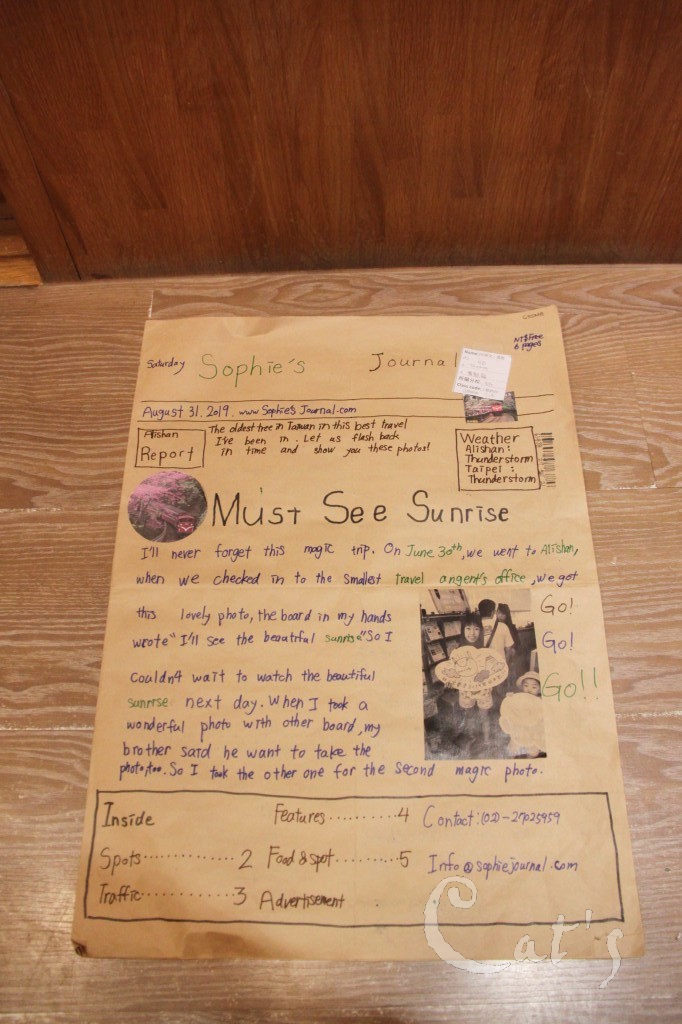 NT$Free
6 pages
Saturday Sophie's Journal
August 31. 2019. www.Sophie's Journal.com
Alishan
Report
The oldest tree in Taiwan in this best travel
I've been in. Let as flash back
in time and show you these photos!
Weather
Alishan:
Thunderstorm
Taipei :
Thunderstorm
Must See Sunrise
I'll never forget this magic trip. On June 30th, we went to Alishan,
when we checked in to the smallest travel angent's office, we got
this lovely photo, the board in my hands
wrote "I'll see the beautiful sunrise" So I
couldn't wait to watch the beautiful
sunrise next day. When I took a
wonderful photo with other board, my
brother said he want to take the
photo, too. So I took the other one for the second magic photo.
Go!
Go!
Go!!
Inside
Spots............2
Traffic...........3
Features.........4
Food & spot........5
Advertisement
Contact:(02)-27025959
Info@sophiejournal.com
Cat's